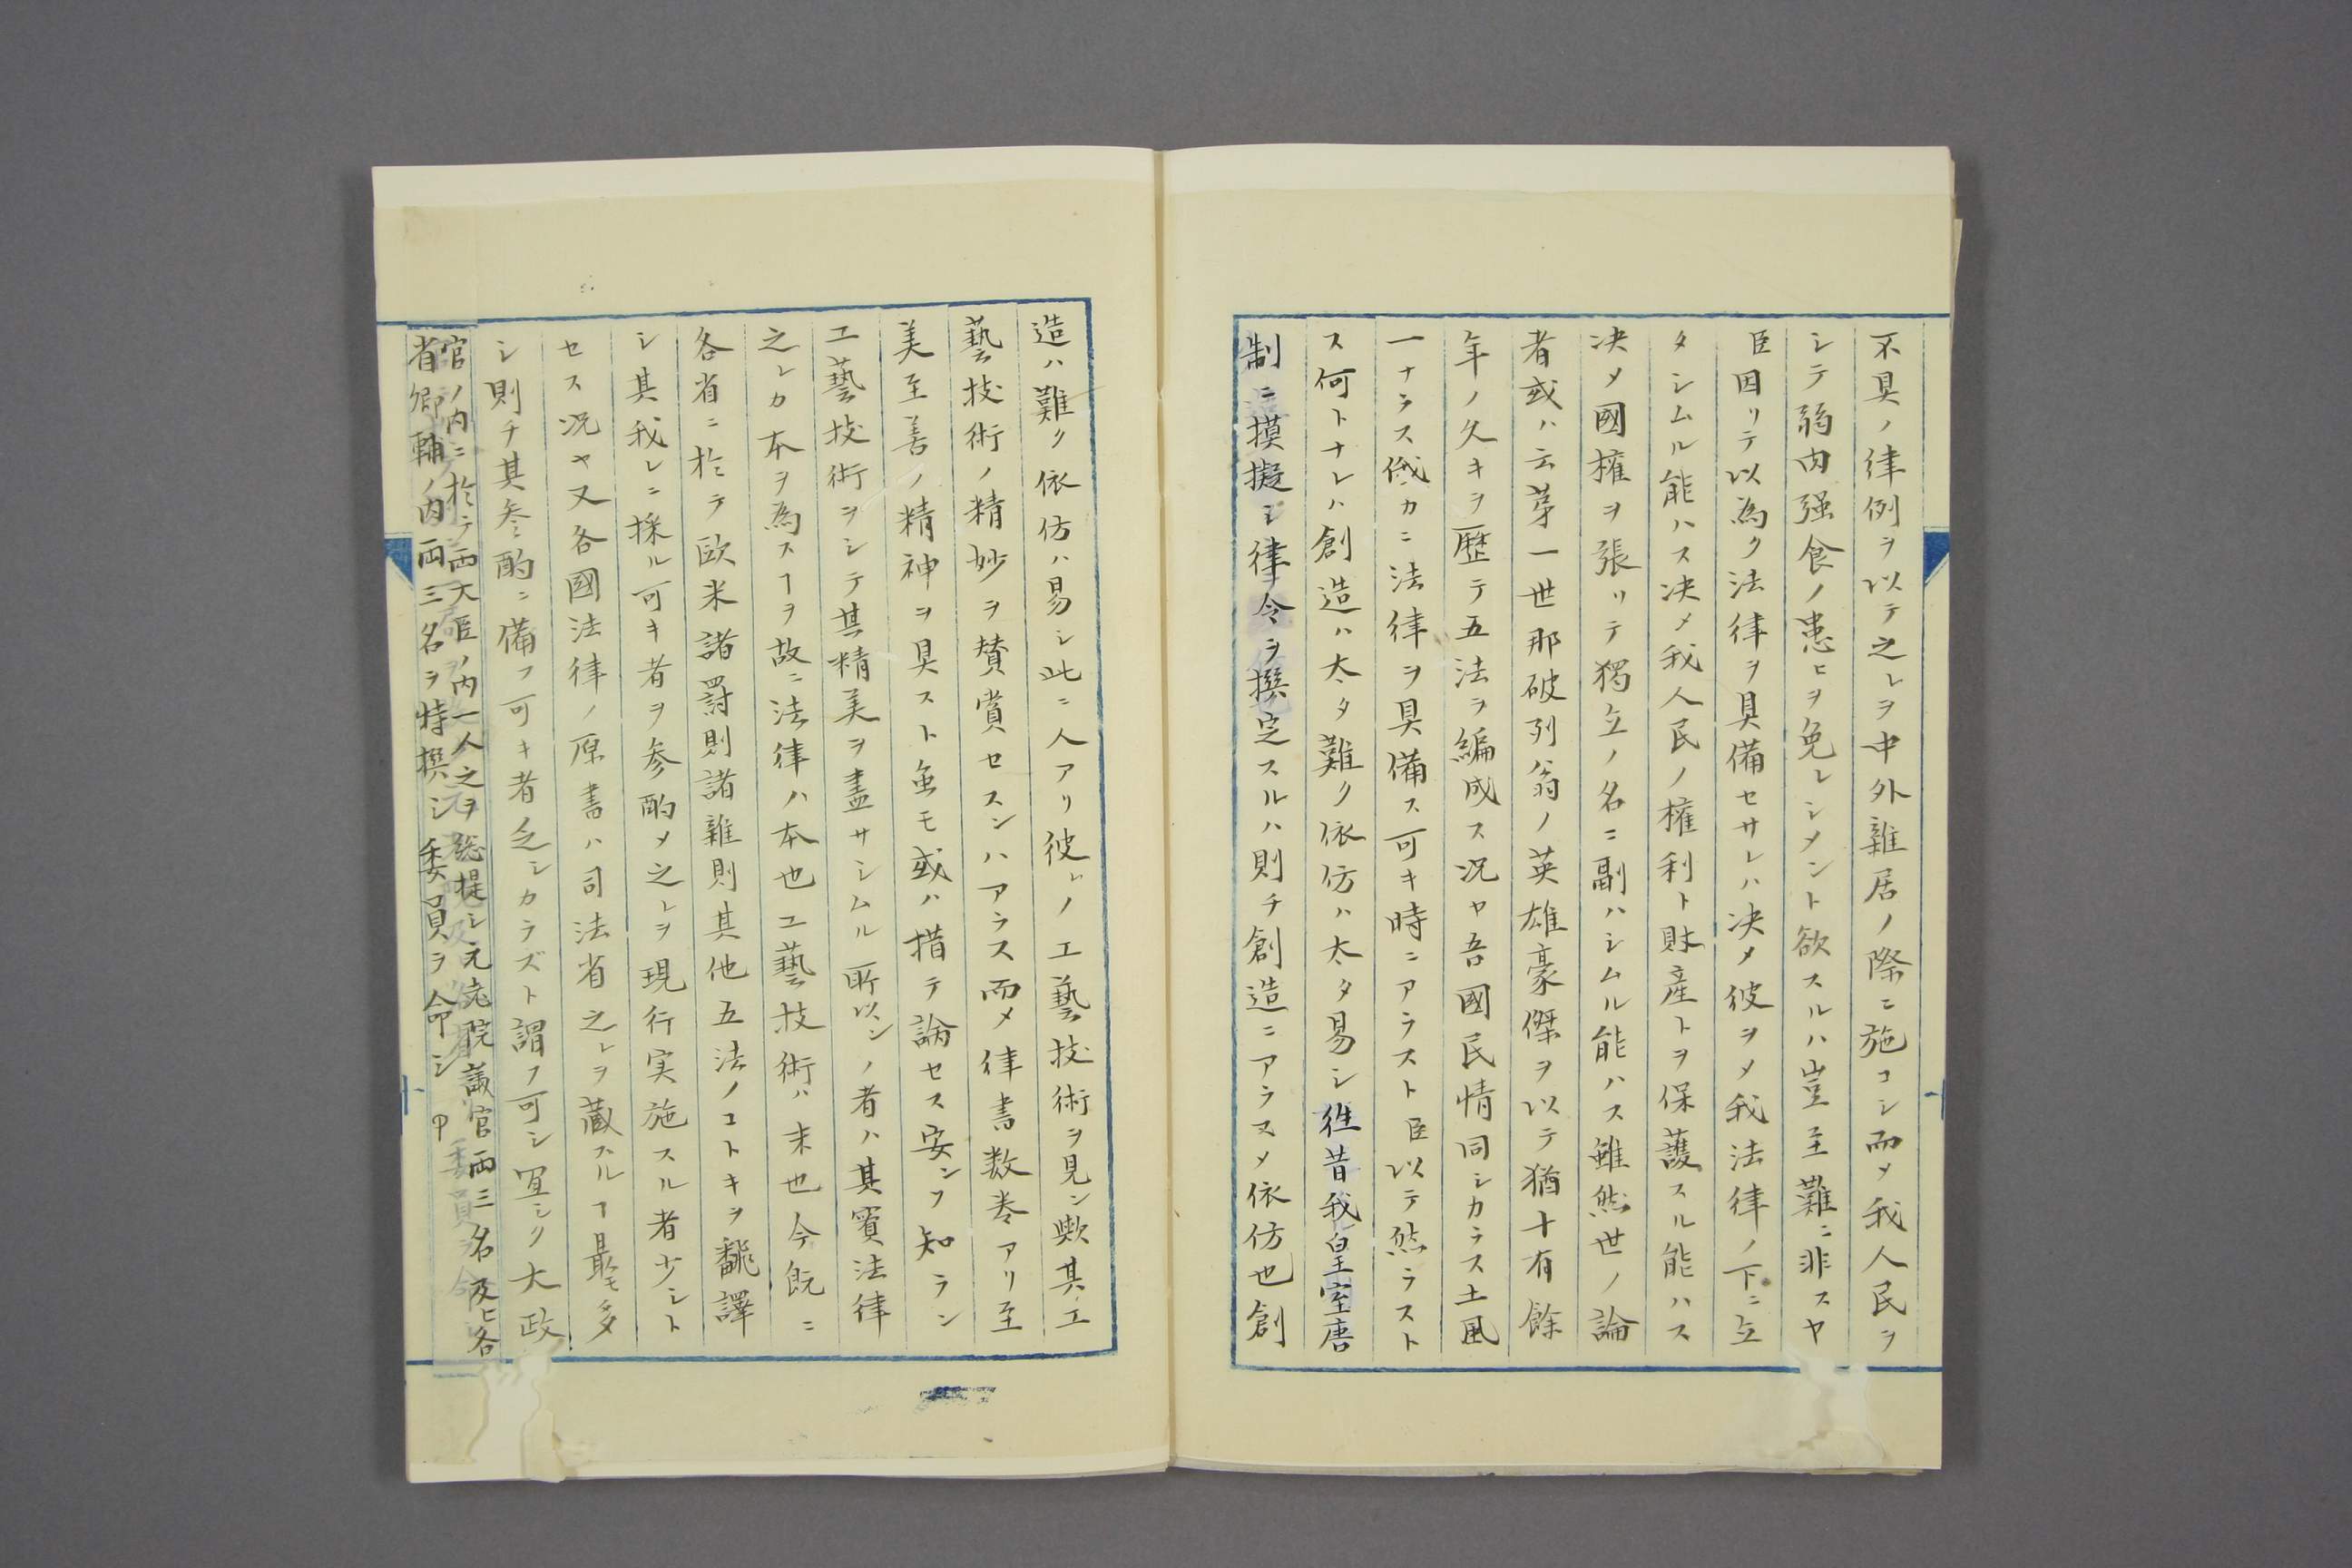 不具ノ律例ヲ以テ之レヲ中外雑居ノ際ニ施コシ而メ我人民ヲ
シテ弱肉强食ノ患ヒヲ免レシメント欲スルハ豈至難ニ非スヤ
臣因リテ以為ク法律ヲ具備セサレハ决メ彼ヲメ我法律ノ下ニ立
タシムル能ハス决メ我人民ノ權利ト財産トヲ保護スル能ハス
决メ國權ヲ張リテ獨立ノ名ニ副ハシムル能ハス雖然世ノ論
者或ハ云茅一世那破列翁ノ英雄豪傑ヲ以テ猶十有餘
年ノ久キヲ歷テ五法ヲ編成ス况ヤ吾國民情同シカラス土風
一ナラス俄カニ法律ヲ具備ス可キ時ニアラスト臣以テ然ラスト
ス何トナレハ創造ハ太タ難ク依仿ハ太タ易シ徃昔我皇室唐
制ニ摸擬シ律令ヲ撰定スルハ則チ創造ニアラスメ依仿也創
造ハ難ク依仿ハ易シ此ニ人アリ彼レノ工藝技術ヲ見ン歟其工
藝技術ノ精妙ヲ賛賞セスンハアラス而メ律書数巻アリ至
美至善ノ精神ヲ具スト虽モ或ハ措テ論セス安ンヲ知ラン
工藝技術ヲシテ其精美ヲ盡サシムル所以ンノ者ハ其實法律
之レカ本ヲ為スヿヲ故ニ法律ハ本也工藝技術ハ末也今既ニ
各省ニ於テ歐米諸罸則諸雜則其他五法ノコトキヲ飜譯
シ其我レニ採ル可キ者ヲ参酌メ之レヲ現行実施スル者少シト
セス况ヤ又各國法律ノ原書ハ司法省之レヲ藏スルヿ最モ多
シ則チ其参酌ニ備フ可キ者乏シカラズト謂フ可シ冝シク大政
官ノ内ニ於テ両大臣ノ内一人之ヲ総提シ元老院議官両三名及ヒ各
省卿輔ノ内両三名ヲ特撰シ委員ヲ命シ